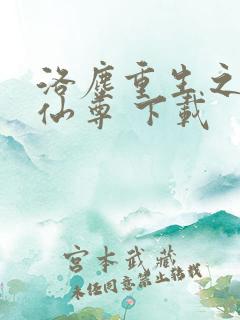 洛塵重生之
仙尊 下載
宮本武藏
未经同意禁止转载